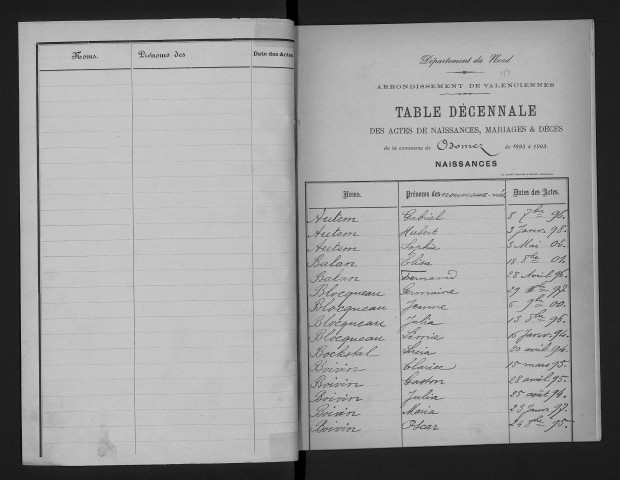 Noms. Prénoms des Date des Actes
Département du Nord
ARRONDISSEMENT DE VALENCIENNES
TABLE DÉCENNALE
DES ACTES DE NAISSANCES, MARIAGES & DÉCÈS
de la commune de Odomez de 1893 à 1903.
NAISSANCES
Noms. Prénoms des nouveaux-nés Dates des Actes.
Autem Gabriel 8 7bre 96.
Autem Hubert 3 Janv. 98.
Autem Sophie 3 Mai 02.
Balan Elisa 18 8bre 01.
Balan Fernand 28 Avril 96.
Blocqueau Germaine 29 97.
Blocqueau Jeanne 6 9bre 00.
Blocqueau Julia 13 8bre 96.
Blocqueau 16 Janv. 94.
Bockstal 20 avril 94.
Boivin Clarice 15 mars 95.
Boivin Gaston 28 avril 95.
Boivin Julia 25 août 94.
Boivin Maria 23 Janv 97.
Boivin Oscar 24 8bre 95.